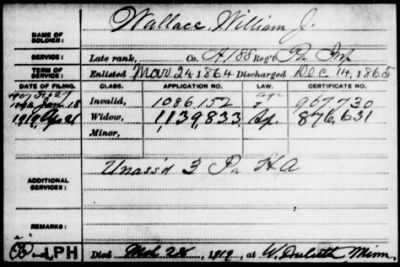 Wallace, William J.
NAME OF SOLDIER:
SERVICE: Late rank, Co. A 188 Reg't Pa Inf
TERM OF SERVICE: Enlisted Mar 24 1864 Discharged Dec 14, 1865
DATE OF FILING. CLASS. APPLICATION NO. LAW. CERTIFICATE NO.
Jan. 18 Invalid, 1086,152 967,730
1919, Apr 21 Widow, 1139,833 876,631
Minor,
ADDITIONAL SERVICES: Unass'd 3 Pa H A
REMARKS:
LPH Died Mch 28, 1919, at W. Duluth Minn.